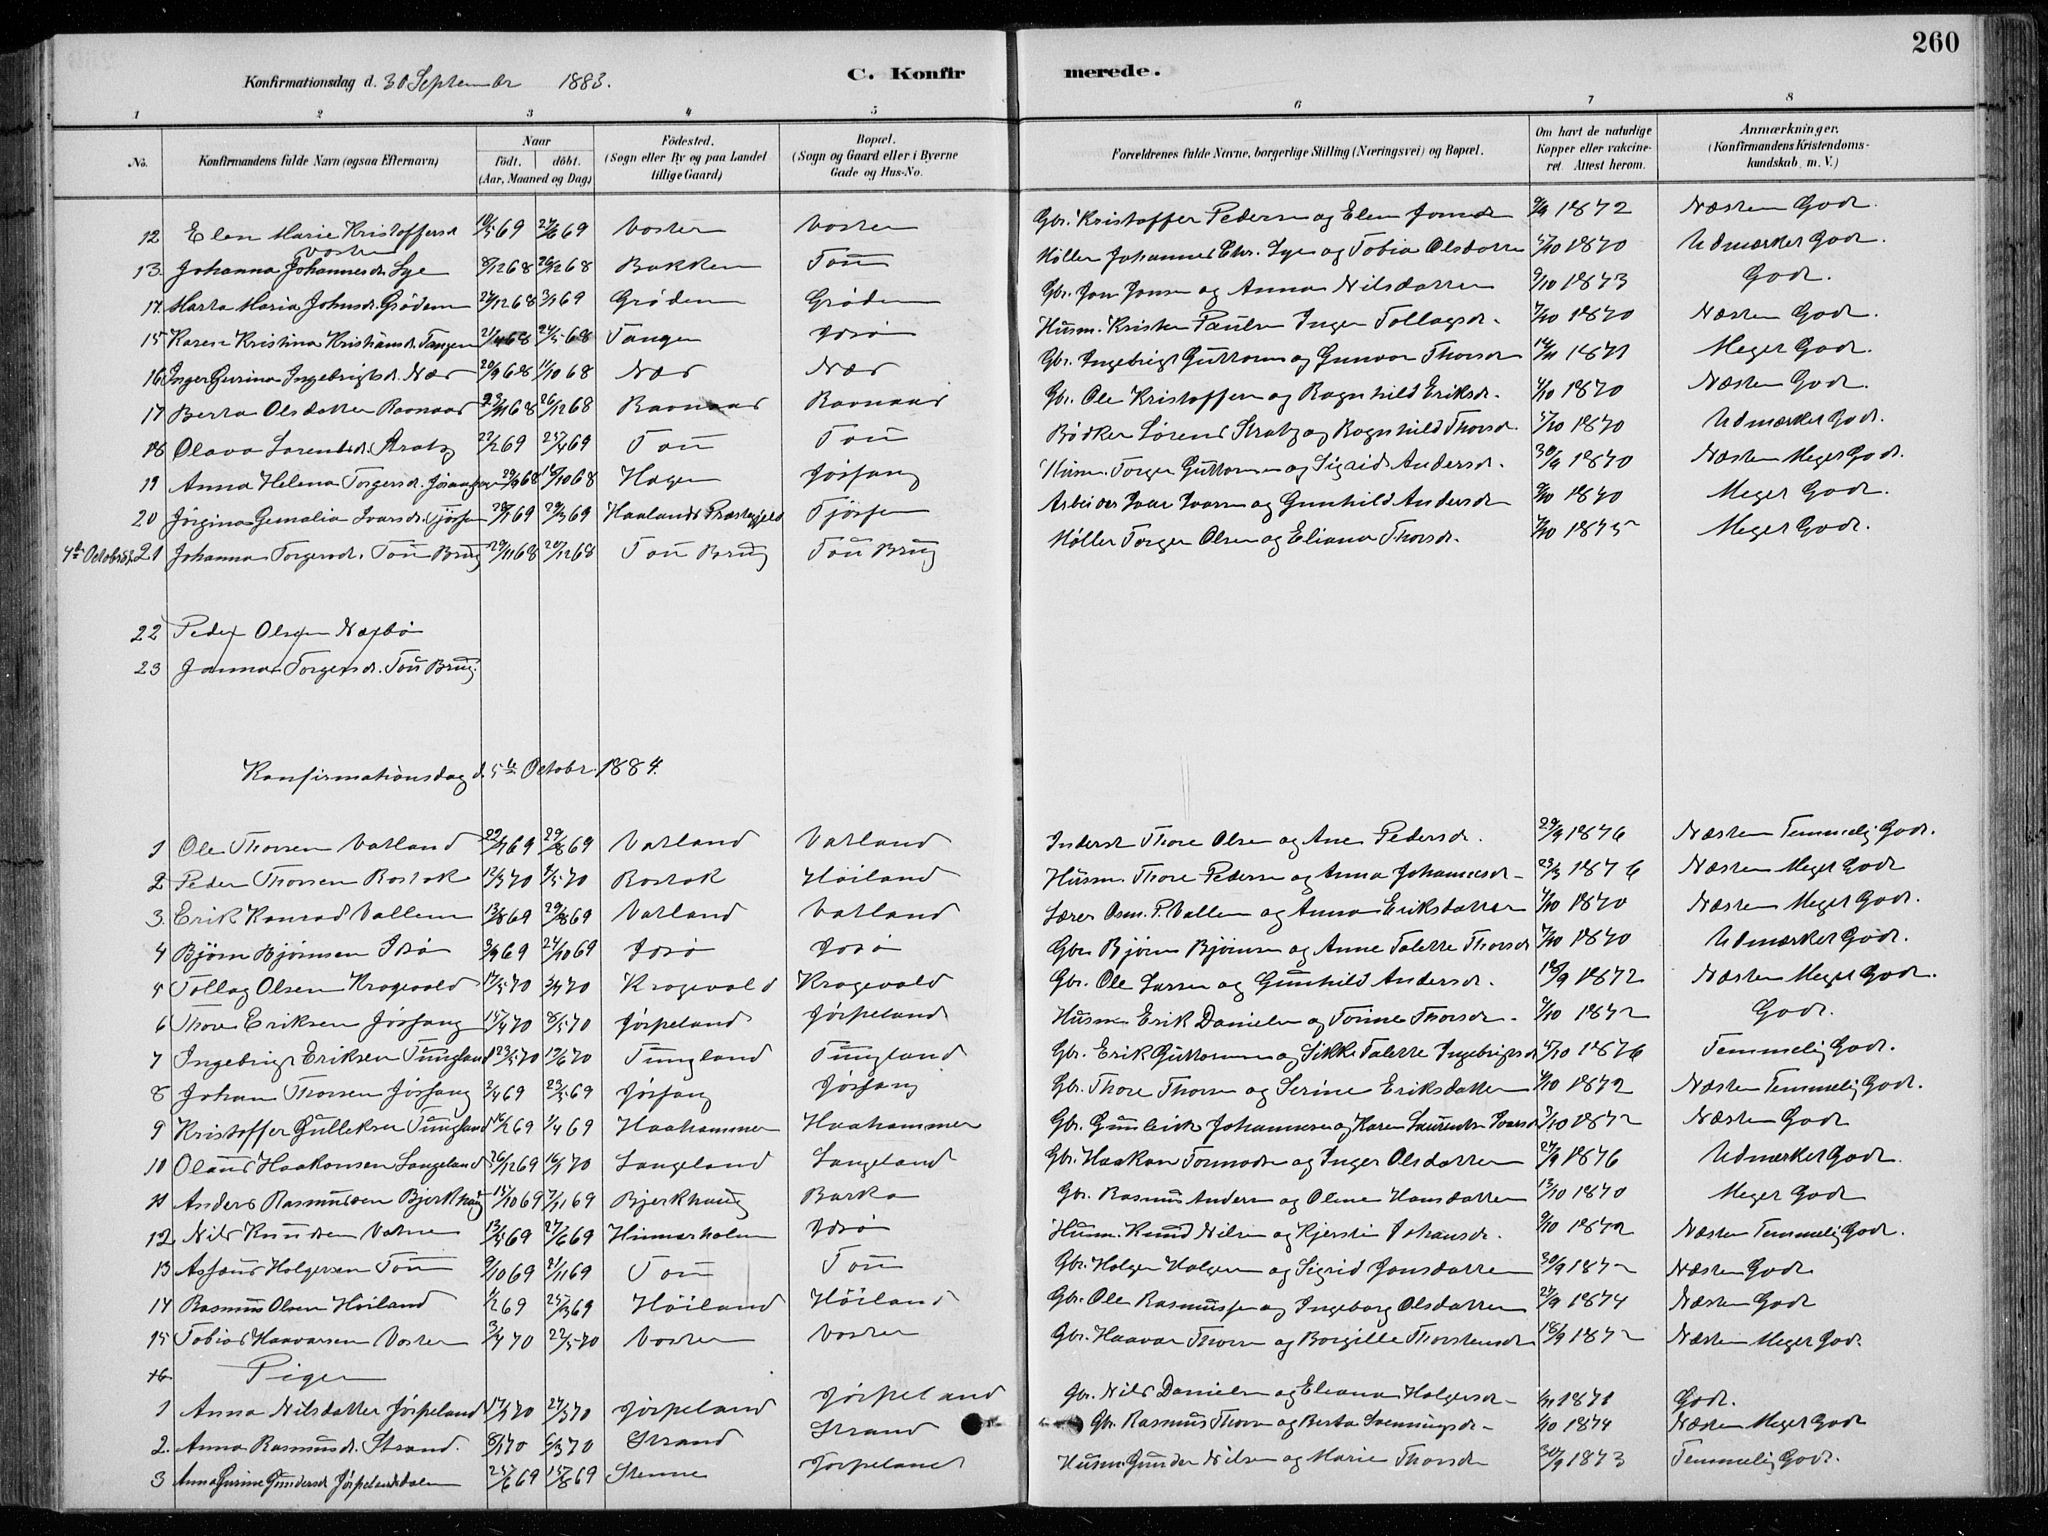 260
Konfirmationsdag d. 30 September 1883. C. Konfirmerede.
1 2 3 4 5 6 7 8
No. Konfirmandens fulde Navn (ogsaa Efternavn) Naar födt. döbt. (Aar, Maaned og Dag) Födested. (Sogn eller By og paa Landet tillige Gaard) Bopæl. (Sogn og Gaard eller i Byerne Gade og Hus-No. Forældrenes fulde Navne, borgerlige Stilling (Næringsvei) og Bopæl. Om havt de naturlige Kopper eller vakcineret. Attest herom. Anmærkninger. (Konfirmandens Kristendomskundskab, m. V.)
12 Elen Marie Kristoffersd Vosten 10/5 69 27/6 69 Vosten Vosten Gbr. Kristoffer Pedersn og Elen Jonsdr 9/9 1872 Næsten Godt.
13. Johanna Johannesdr. Lye 8/12 68 26/12 68 Bakken Tou Møller Johannes Chr. Lye og Tobia Olsdatter 5/10 1870 Udmærket Godt.
14. Marta Maria Johnsdr. Grødem 27/12 68 3/1 69 Grødem Grødem Gbr. Jon Jonsn og Anna Nilsdatter 9/10 1873 Godt.
15 Karen Kristina Kristiansdr. Tangen 21/4 68 24/5 68 Tangen Idsö Husm. Kristen Paulsn Inger Tollagsdr. 7/10 1870 Næsten Godt.
16 Inger Gurina Ingebrigtsdr. Nær 20/9 68 11/10 68 Nær Nær Gbr. Ingebrigt Guttormsn og Gunvor Thorsdr 14/11 1871 Meget Godt.
17 Berta Olsdatter Ravnaas 23/11 68 26/12 68 Ravnaas Ravnaas Gbr. Ole Kristoffersn og Ragnhild Eriksdr. 4/10 1870 Næsten Godt.
18 Olava Sorentsdr. Stratz 22/2 69 25/4 69 Tou Tou Bødker Sörend Stratz og Ragnhild Thorsdr. 5/10 1870 Udmærket Godt.
19 Anna Helena Torgersdr. Jösang 20/9 68 18/10 68 Hagen Jøssang Husm. Torger Guttormsn og Sigrid Andersdr. 30/9 1870 Næsten Meget Godt.
20 Jörgina Gemalia Ivarsdr. Tjösten 28/1 69 29/3 69 Haalands Præstegjeld Tjösten Arbeider Ivar Ivarsn og Gunhild Andersdr 9/10 1870 Meget Godt.
7de October 21 Johanna Torgersdr. Tou Brug 29/11 68 20/12 68 Tou Brug Tou Brug Møller Torger Olsen og Eliana Thorsdr. 4/10 1875 Meget Godt.
22 Peder Olsen Næsbö
23 Janna Torgersdr. Tou Brug.
Konfirmationsdag d. 5te Octobr. 1884.
1 Ole Thorsen Vatland 22/7 69 29/8 69 Vatland Vatland Inderst Thore Olsn og Ane Pedersdr. 29/9 1876 Næsten Temmelig Godt.
2 Peder Thorsen Rostok 12/3 70 8/5 70 Rostok Höiland Husm. Thore Pedersn og Anna Johannesdr. 23/3 1876 Næsten Meget Godt
3. Erik Konrad Vallem 13/8 69 29/8 69 Vatland Vatland Lærer Osm. P. Vallem og Anna Eriksdatter 4/10 1870 Næsten Meget Godt.
4 Bjørn Bjørnsen Idsö 3/9 69 24/10 69 Idsö Idsö Gbr Bjørn Bjørnsn og Anne Talette Thorsdr 7/10 1870 Udmærket Godt.
5 Tollag Olsen Kragevold 17/5 70 3/7 70 Kragevold Kragevold Gbr. Ole Larsen og Gunhild Andersdr. 18/9 1872 Næsten Meget Godt.
6 Thore Eriksen Jössang 15/4 70 8/5 70 Jörpeland Jörpeland Husm. Erik Danielsn og Torine Thorsdr. 9/10 1872 Godt.
7 Ingebrigt Eriksen Tungland 23/5 70 19/6 70 Tungland Tungland Gbr. Erik Guttormsn og Sikke Talette Ingebrigtsdr 5/10 1876 Temmelig Godt.
8 Johan Thorsen Jössang 2/4 69 23/5 69 Jössang Jössang Gbr. Thore Thorsn og Serine Eriksdatter 4/10 1872 Næsten Temmelig Godt.
9 Kristoffer Gulleksen Tungland 16/2 69 1/4 69 Haahammer Haahammer Gbr. Gunleik Johannesn og Karen Laurentse Ivarsd 3/10 1872 Næsten Godt
10 Olaus Haakonsen Langeland 26/12 69 16/1 70 Langeland Langeland Gbr. Haakon Tormodsn og Inger Olsdatter 27/9 1876 Udmærket Godt
11 Anders Rasmussen Bjerkhaug 15/10 69 7/11 69 Bjerkhaug Barka Gbr. Rasmus Andersn og Oline Hansdatter 13/10 1870 Meget Godt
12 Nils Knudsen Vatne 13/5 69 27/6 69 Hinnarholm Idsö Husm. Knud Nilsen og Kjersti Johansdr. 9/10 1872 Næsten Temmelig Godt.
13 Asseus Holgersen Tou 9/10 69 21/11 69 Tou Tou Gbr. Holger Holgersn og Sigrid Jonsdatter 30/9 1872 Næsten Godt
14 Rasmus Olsen Höiland 1/2 69 25/3 69 Höiland Höiland Gbr. Ole Rasmussen og Ingeborg Olsdatter 27/9 1874 Næsten Godt
15 Tobias Haavarsen Vosten 3/4 70 22/5 70 Vosten Vosten Gbr. Haavar Thorsn og Borgille Thorstensdr 18/9 1872 Næsten Meget Godt.
16 Piger
1 Anna Nilsdatter Jörpeland 17/1 70 27/3 70 Jörpeland Jörpeland Gbr. Nils Danielsn og Eliana Holgersdr. 1871 Godt.
2. Anna Rasmusdr. Strand. 8/1 70 6/3 70 Strand Strand Gbr. Rasmus Thorsn og Berta Svenningsdr. 4/10 1874 Næsten Meget Godt
3 Anna Gurine Gundersdr Jörpelandsdalen 25/6 69 15/8 69 Stenne Jörpeland Husm. Gunder Nilsen og Marie Thorsdr 30/9 1873 Temmelig Godt.